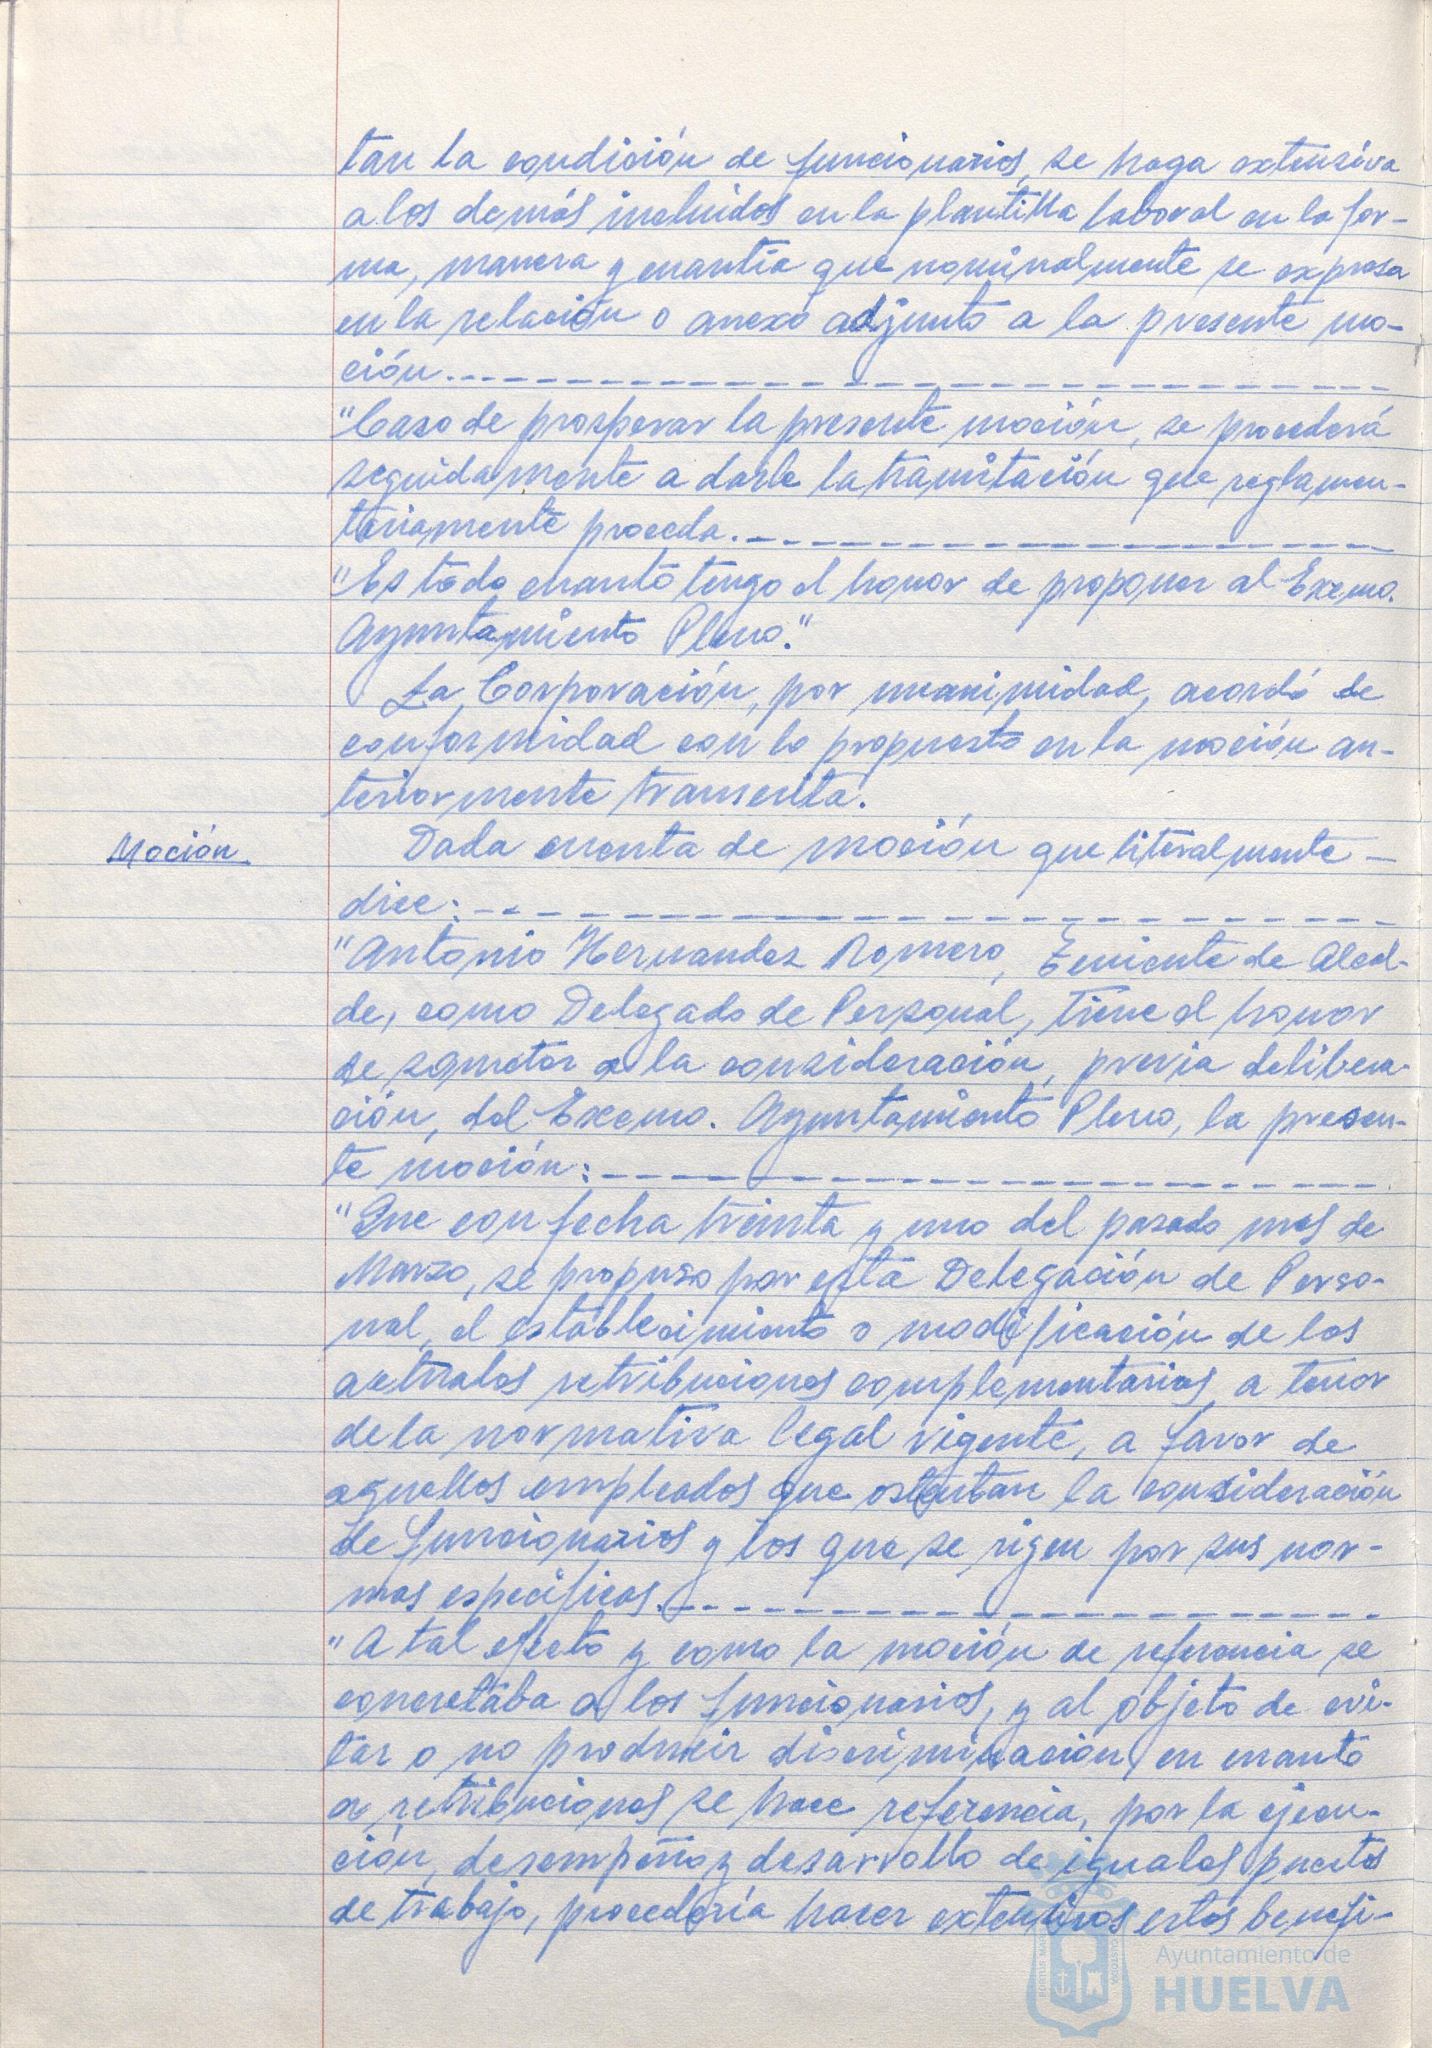 tan la condición de funcionarios, se haga extensiva
a los demás incluidos en la plantilla laboral en la for-
ma, manera y cuantía que nominalmente se expresa
en la relación o anexo adjunto a la presente mo-
ción.
"Caso de prosperar la presente moción, se procederá
seguidamente a darle la tramitación que reglamen-
tariamente proceda.
"Es todo cuanto tengo el honor de proponer al Excmo.
Ayuntamiento Pleno."
La Corporación, por unanimidad, acordó de
conformidad con lo propuesto en la moción an-
teriormente transcrita.
Moción
Dada cuenta de moción que literalmente -
dice:
"Antonio Hernandez Romero, Teniente de Alcal-
de, como Delegado de Personal, tiene el honor
de someter a la consideración, previa delibera-
ción, del Excmo. Ayuntamiento Pleno, la presen-
te moción:
"Que con fecha treinta y uno del pasado mes de
Marzo, se propuso por esta Delegación de Perso-
nal, el establecimiento o modificación de los
actuales retribuciones complementarias, a tenor
de la normativa legal vigente, a favor de
aquellos empleados que ostentan la consideración
de funcionarios y los que se rigen por sus nor-
mas específicas.
"A tal efecto y como la moción de referencia se
concretaba a los funcionarios, y al objeto de evi-
tar o no producir discriminación en cuanto
a retribuciones se hace referencia, por la ejecu-
ción, desempeño y desarrollo de iguales puestos
de trabajo, procedería hacer extensivos estos benefi-
PORTUS MARIS
CUSTODIA
Ayuntamiento de
HUELVA